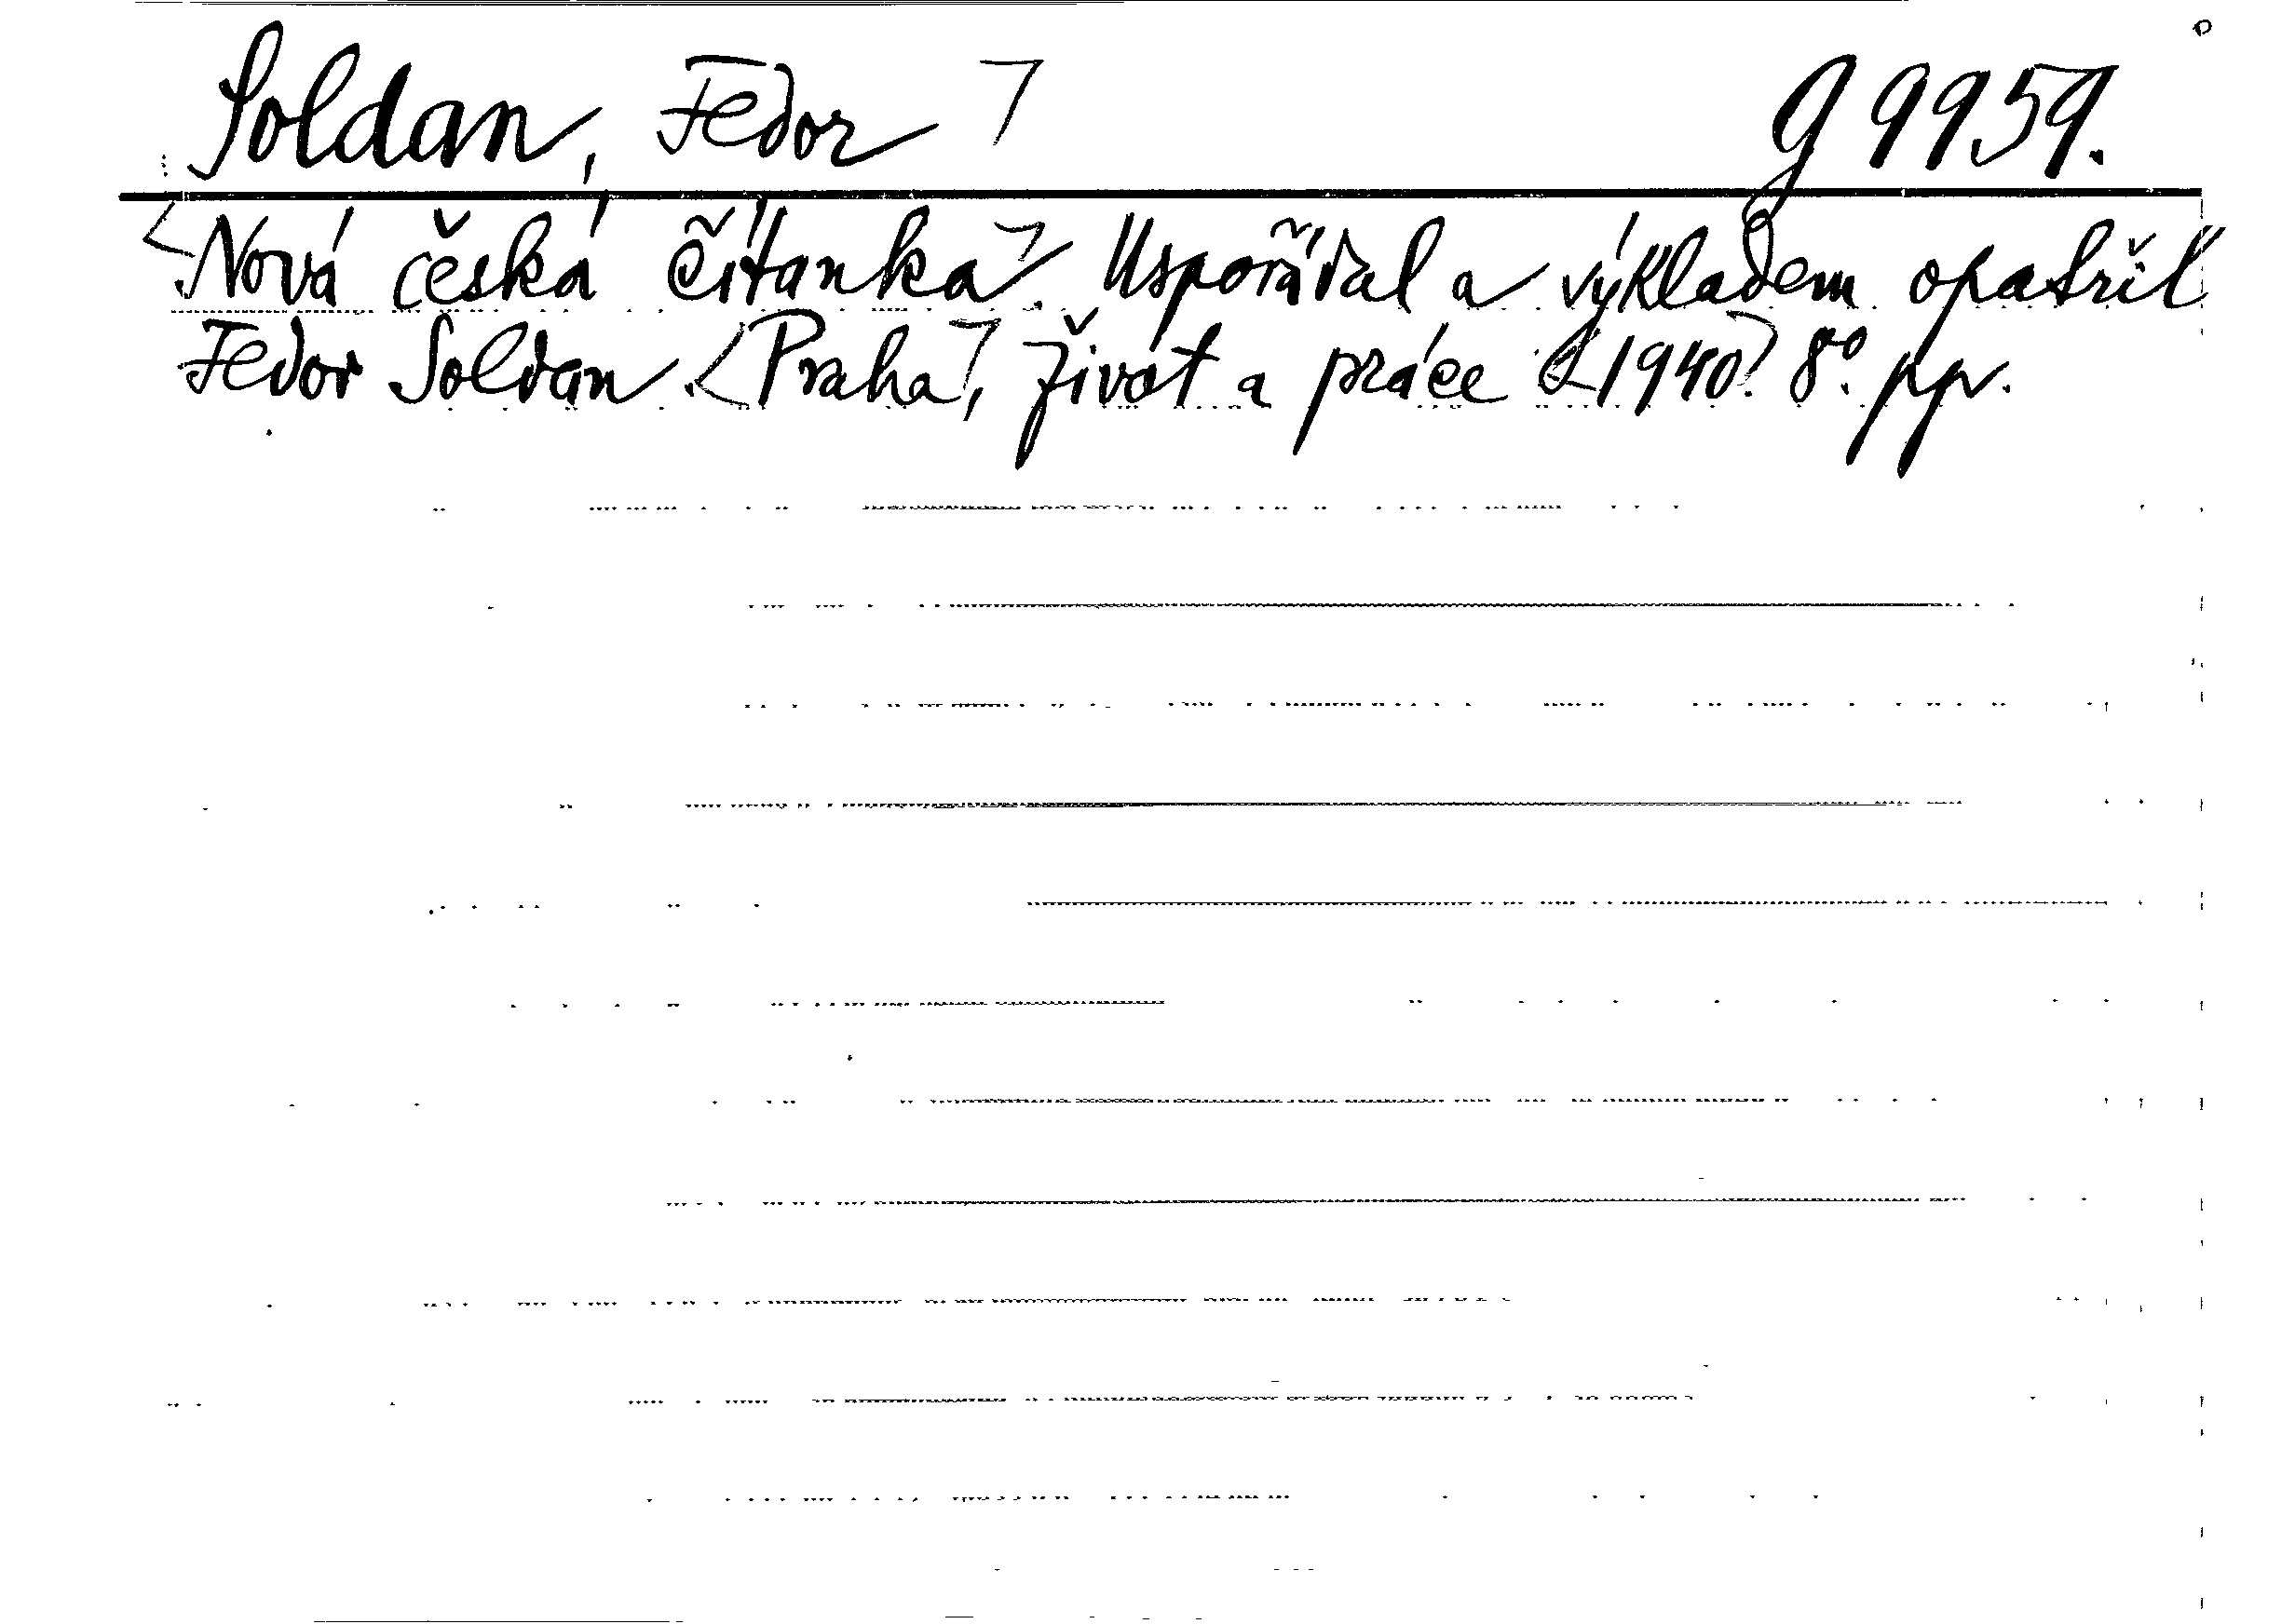 Soldan, Fedor ⌉ g 9959.
<Nová česká čítanka⌉. Uspořádal a výkladem opatřil
Fedor Soldan <Praha⌉, Život a práce <1940⌉. 8°. ppv.